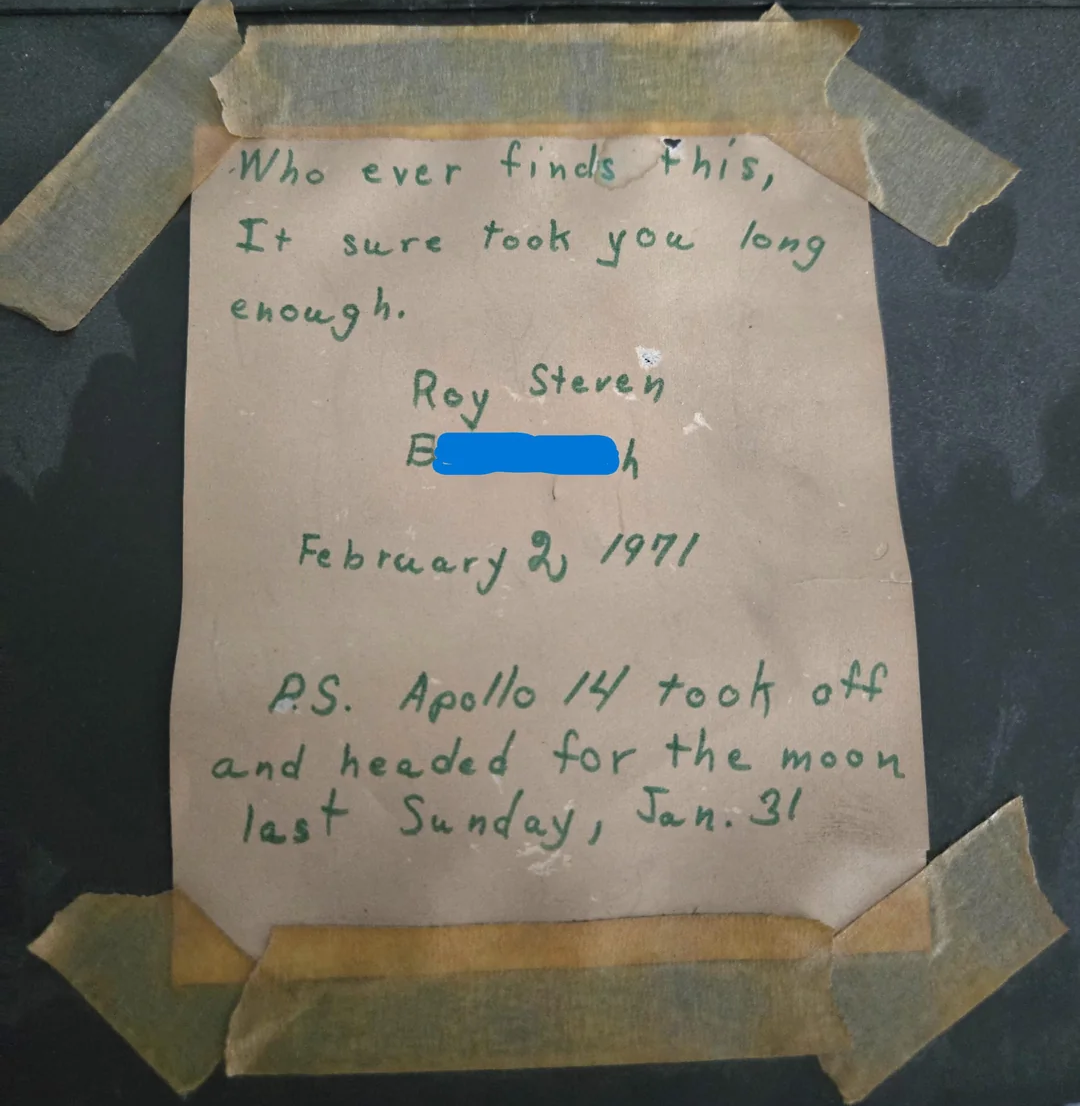 Who ever finds this,
It sure took you long
enough.
Roy Steven
B h
February 2, 1971
P.S. Apollo 14 took off
and headed for the moon
last Sunday, Jan. 31